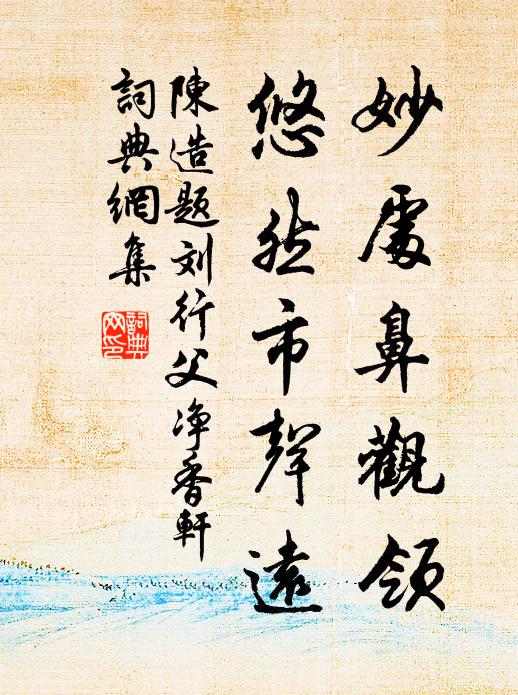 妙處鼻觀領
悠然市聲遠
陳造題刘行父净香軒
詞典網集
詞典網印